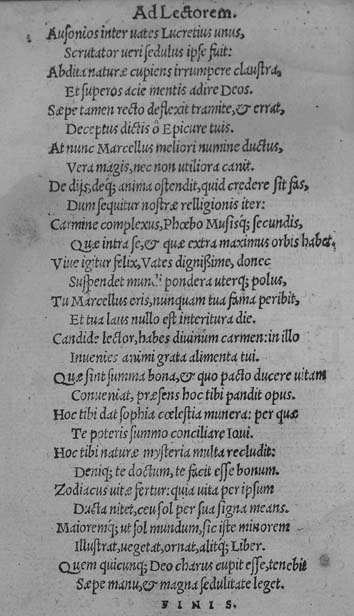 Ad Lectorem.
Ausonios inter uates Lucretius unus,
Scrutator ueri sedulus ipse fuit:
Abdita naturæ cupiens irrumpere claustra,
Et superos acie mentis adire Deos.
Sæpe tamen recto deflexit tramite, & errat,
Deceptus dictis ô Epicure tuis.
At nunc Marcellus meliori numine ductus,
Vera magis, nec non utiliora canit.
De dijs, deq; anima ostendit, quid credere sit fas,
Dum sequitur nostræ relligionis iter:
Carmine complexus, Phœbo Musisq; secundis,
Quæ intra se, & quæ extra maximus orbis habet.
Viue igitur felix, Vates dignißime, donec
Suspendet mundi pondera uterq; polus,
Tu Marcellus eris, nunquam tua fama peribit,
Et tua laus nullo est interitura die.
Candide lector, habes diuinum carmen: in illo
Inuenies animi grata alimenta tui.
Quæ sint summa bona, & quo pacto ducere uitam
Conueniat, præsens hoc tibi pandit opus.
Hoc tibi dat sophia cœlestia munera: per quæ
Te poteris summo conciliare Ioui.
Hoc tibi naturæ mysteria multa recludit:
Deniq; te doctum, te facit esse bonum.
Zodiacus uitæ fertur: quia uita per ipsum
Ducta nitet, ceu sol per sua signa means.
Maioremq; ut sol mundum, sic iste minorem
Illustrat, uegetat, ornat, alitq; Liber.
Quem quicunq; Deo charus cupit esse, tenebit
Sæpe manu, & magna sedulitate leget.
FINIS.